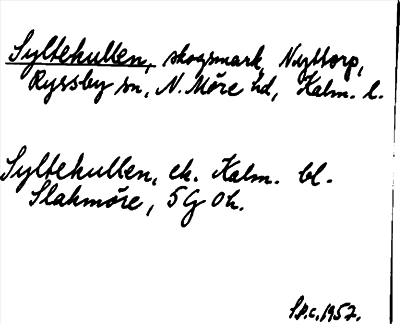 Syltekullen, skogsmark, Nyttorp,
Ryssby sn, N. Möre hd, Kalm. l.
Syltekullen, ek. Kalm. bl.
Slakmöre, 5 G 0 h.
1957.